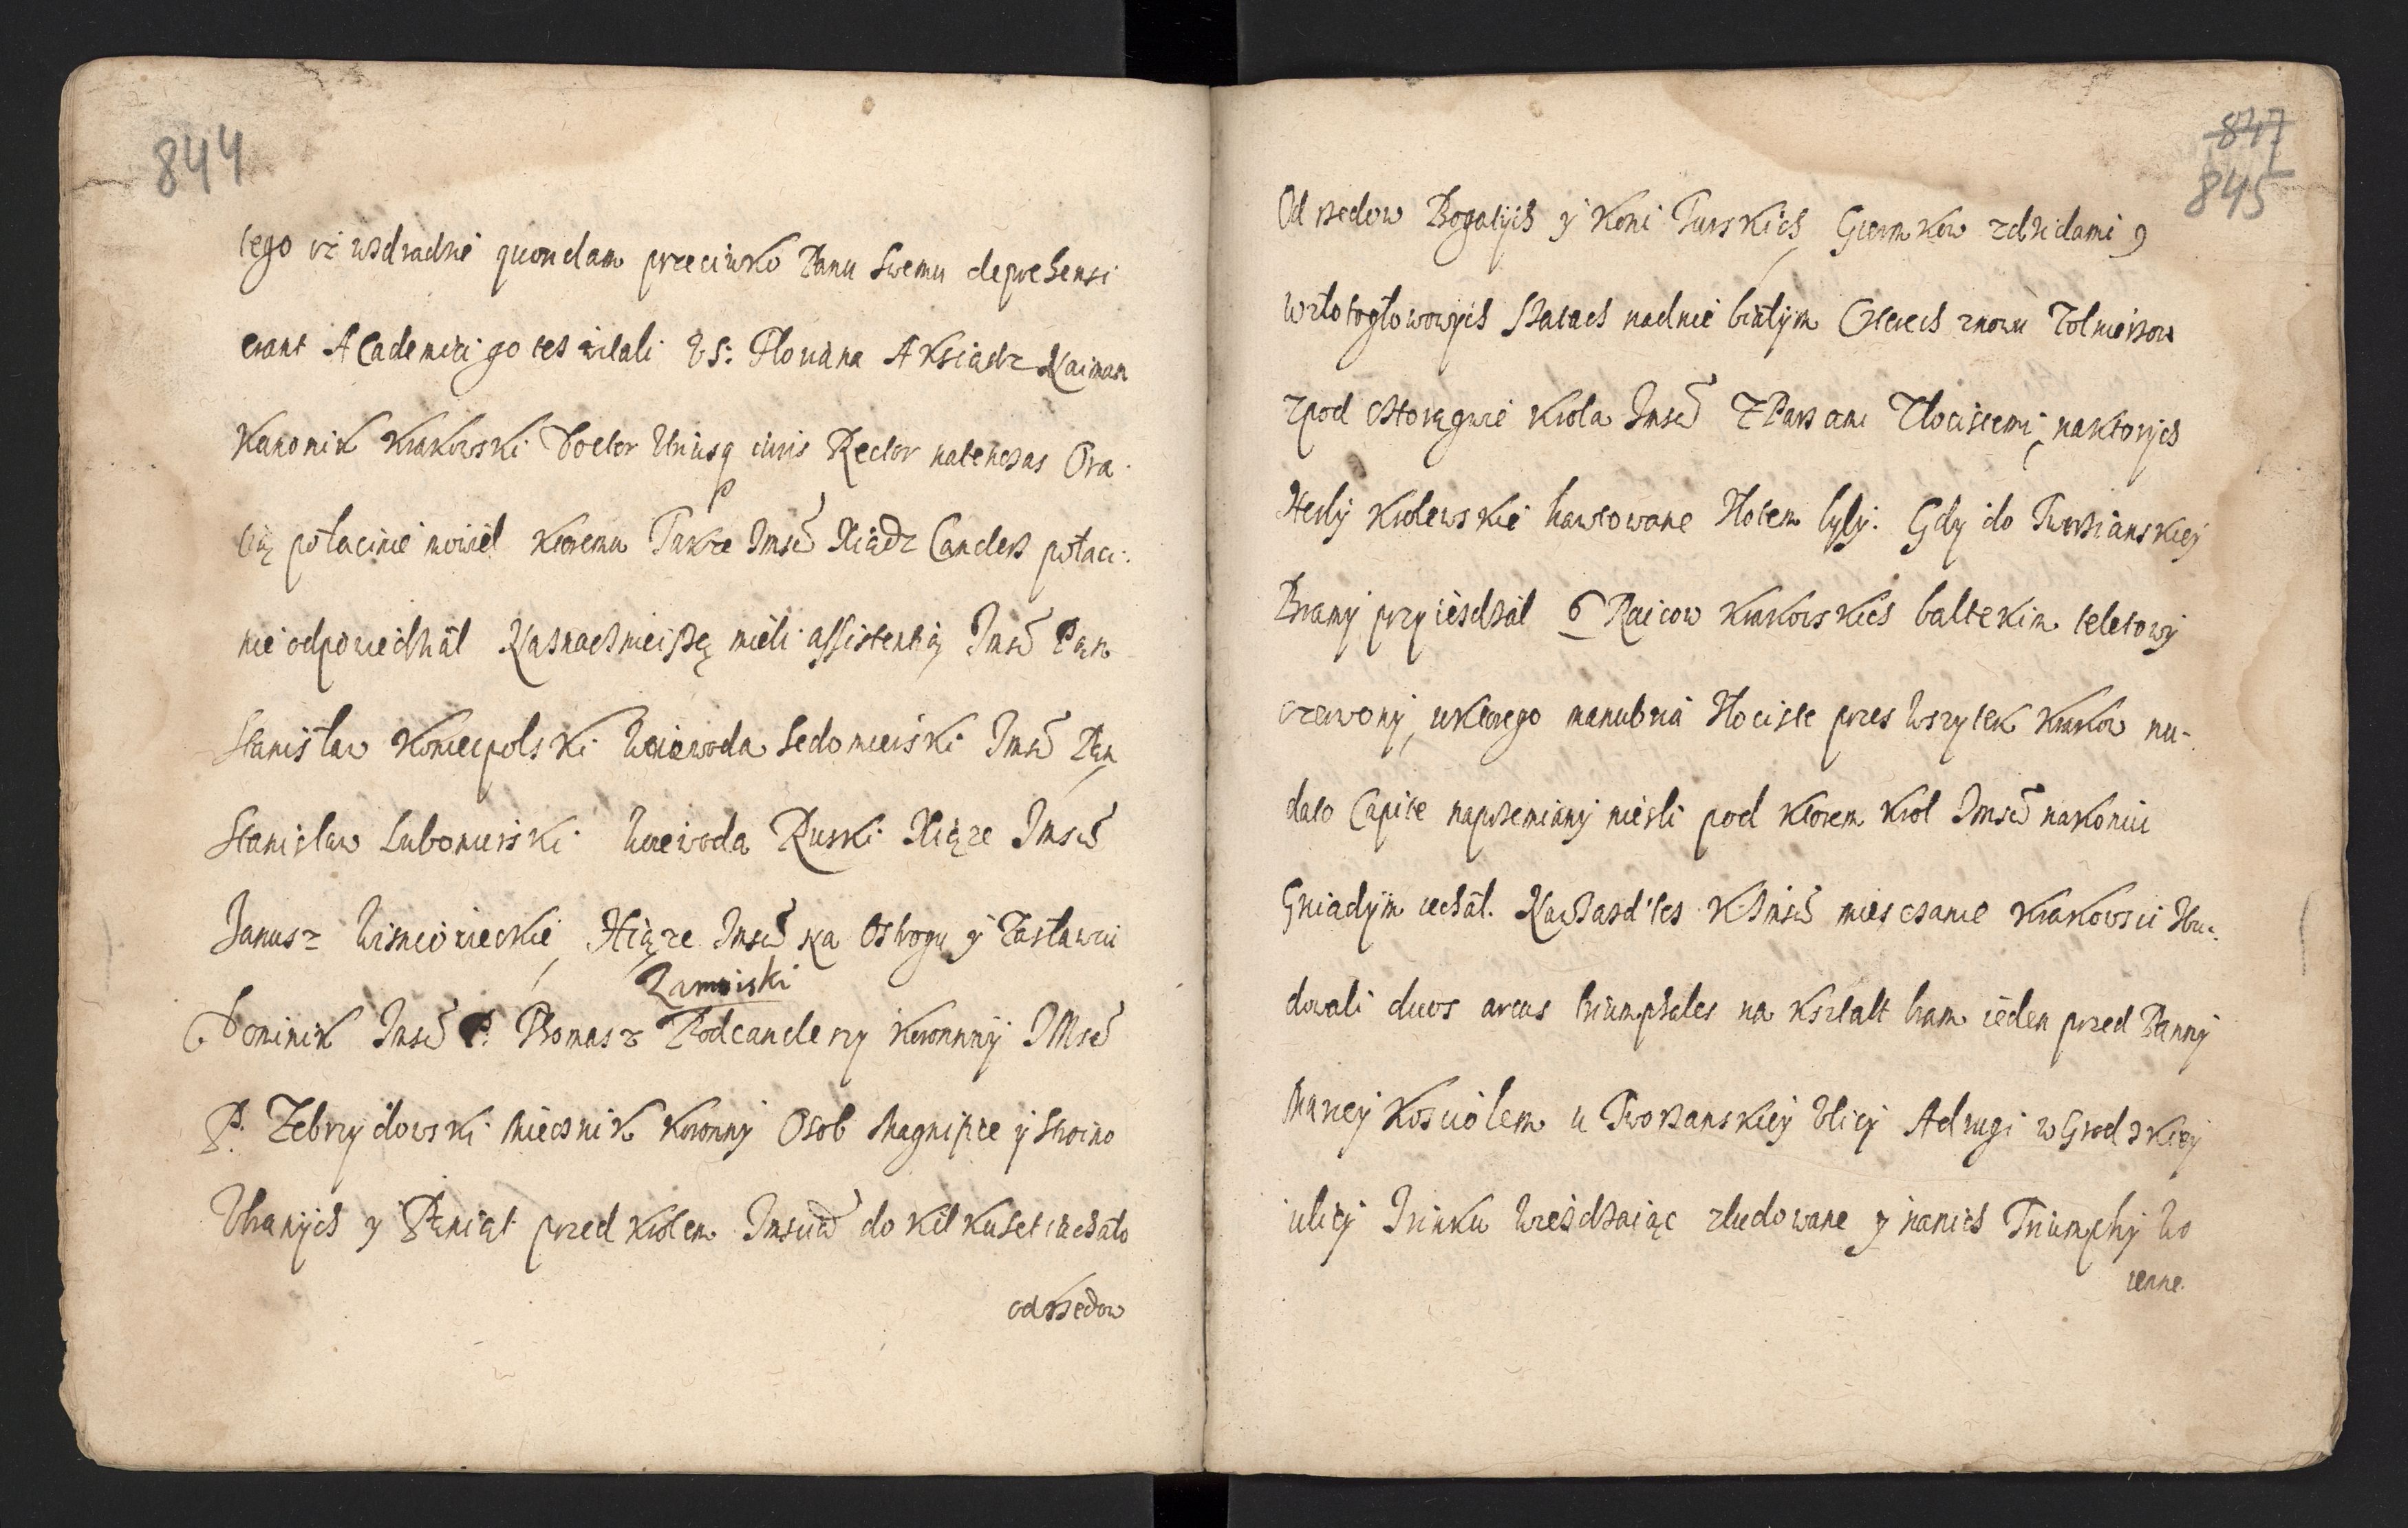 844
tego iż wsdradzie quondam przeciwko Panu swemu deprehensi
erant Academici go tes witali V S: Floriana A Ksiądz Naiman
Kanonik Krakowski Doctor Utriusq iuris Rector natenczas Ora
cią połacinie mowiel ktoremu Takze Jmsć Xiądz Canclerz połaci:
nie odpowiedział Naznacznieiszą mieli assistentią Jmsć Pan
Stanisław Koniecpolski Woiewoda Sedomierski Jmsć Pan
Stanisław Lubomirski Woiewoda Ruski Xiąze Jmsć
Janusz Wisniowieckie, Xiąze Jmsć na Ostrogu y Zasławiu
Zamoiski
Dominik Jmsć P. Thomasz Podcanclerzy Koronnnÿ JMsć
P. Zebrzydowski Miecznik Koronny Osob Magnifice y stroino
Ubranÿch y Paniąt przed Krolem Jmscią do kilkuset iechało
od Rzedow
847
845
Od rzedow Bogatÿch ÿ Koni Turskich, Giermkow zdzidami y
wzłotogłowowÿch szatach nadnie białÿm Czterech znowu Zolnierzow
zpod chorągwie Krola Jmsć Z Parsami Złocistemi, naktorÿch
Herbÿ Krolewskie hawtowane złotem byłÿ. Gdy do Tworzianskieÿ
Bramÿ przyiesdzał 6 Raicow Krakowskich baltekim teletowÿ
czerwonÿ, uktorego manubria złociste przes wszytek Krakow nu-
dato Capite naprzemianÿ niesli pod ktorem Krol Jmsć nakoniu
Gniadÿm iechał. Na wiazd tes K Jmsć miesczanie Krakowsci zbu-
dowali duos arcus triumphales na kształt bram ieden przed Pannÿ
Mariey Kosciołem u Tworzanskieÿ Ulicÿ A drugi w Grodzkieÿ
ulicÿ Irinku wzieżdzaiąc zbudowane y nanich Triumphÿ Wo
ienne.